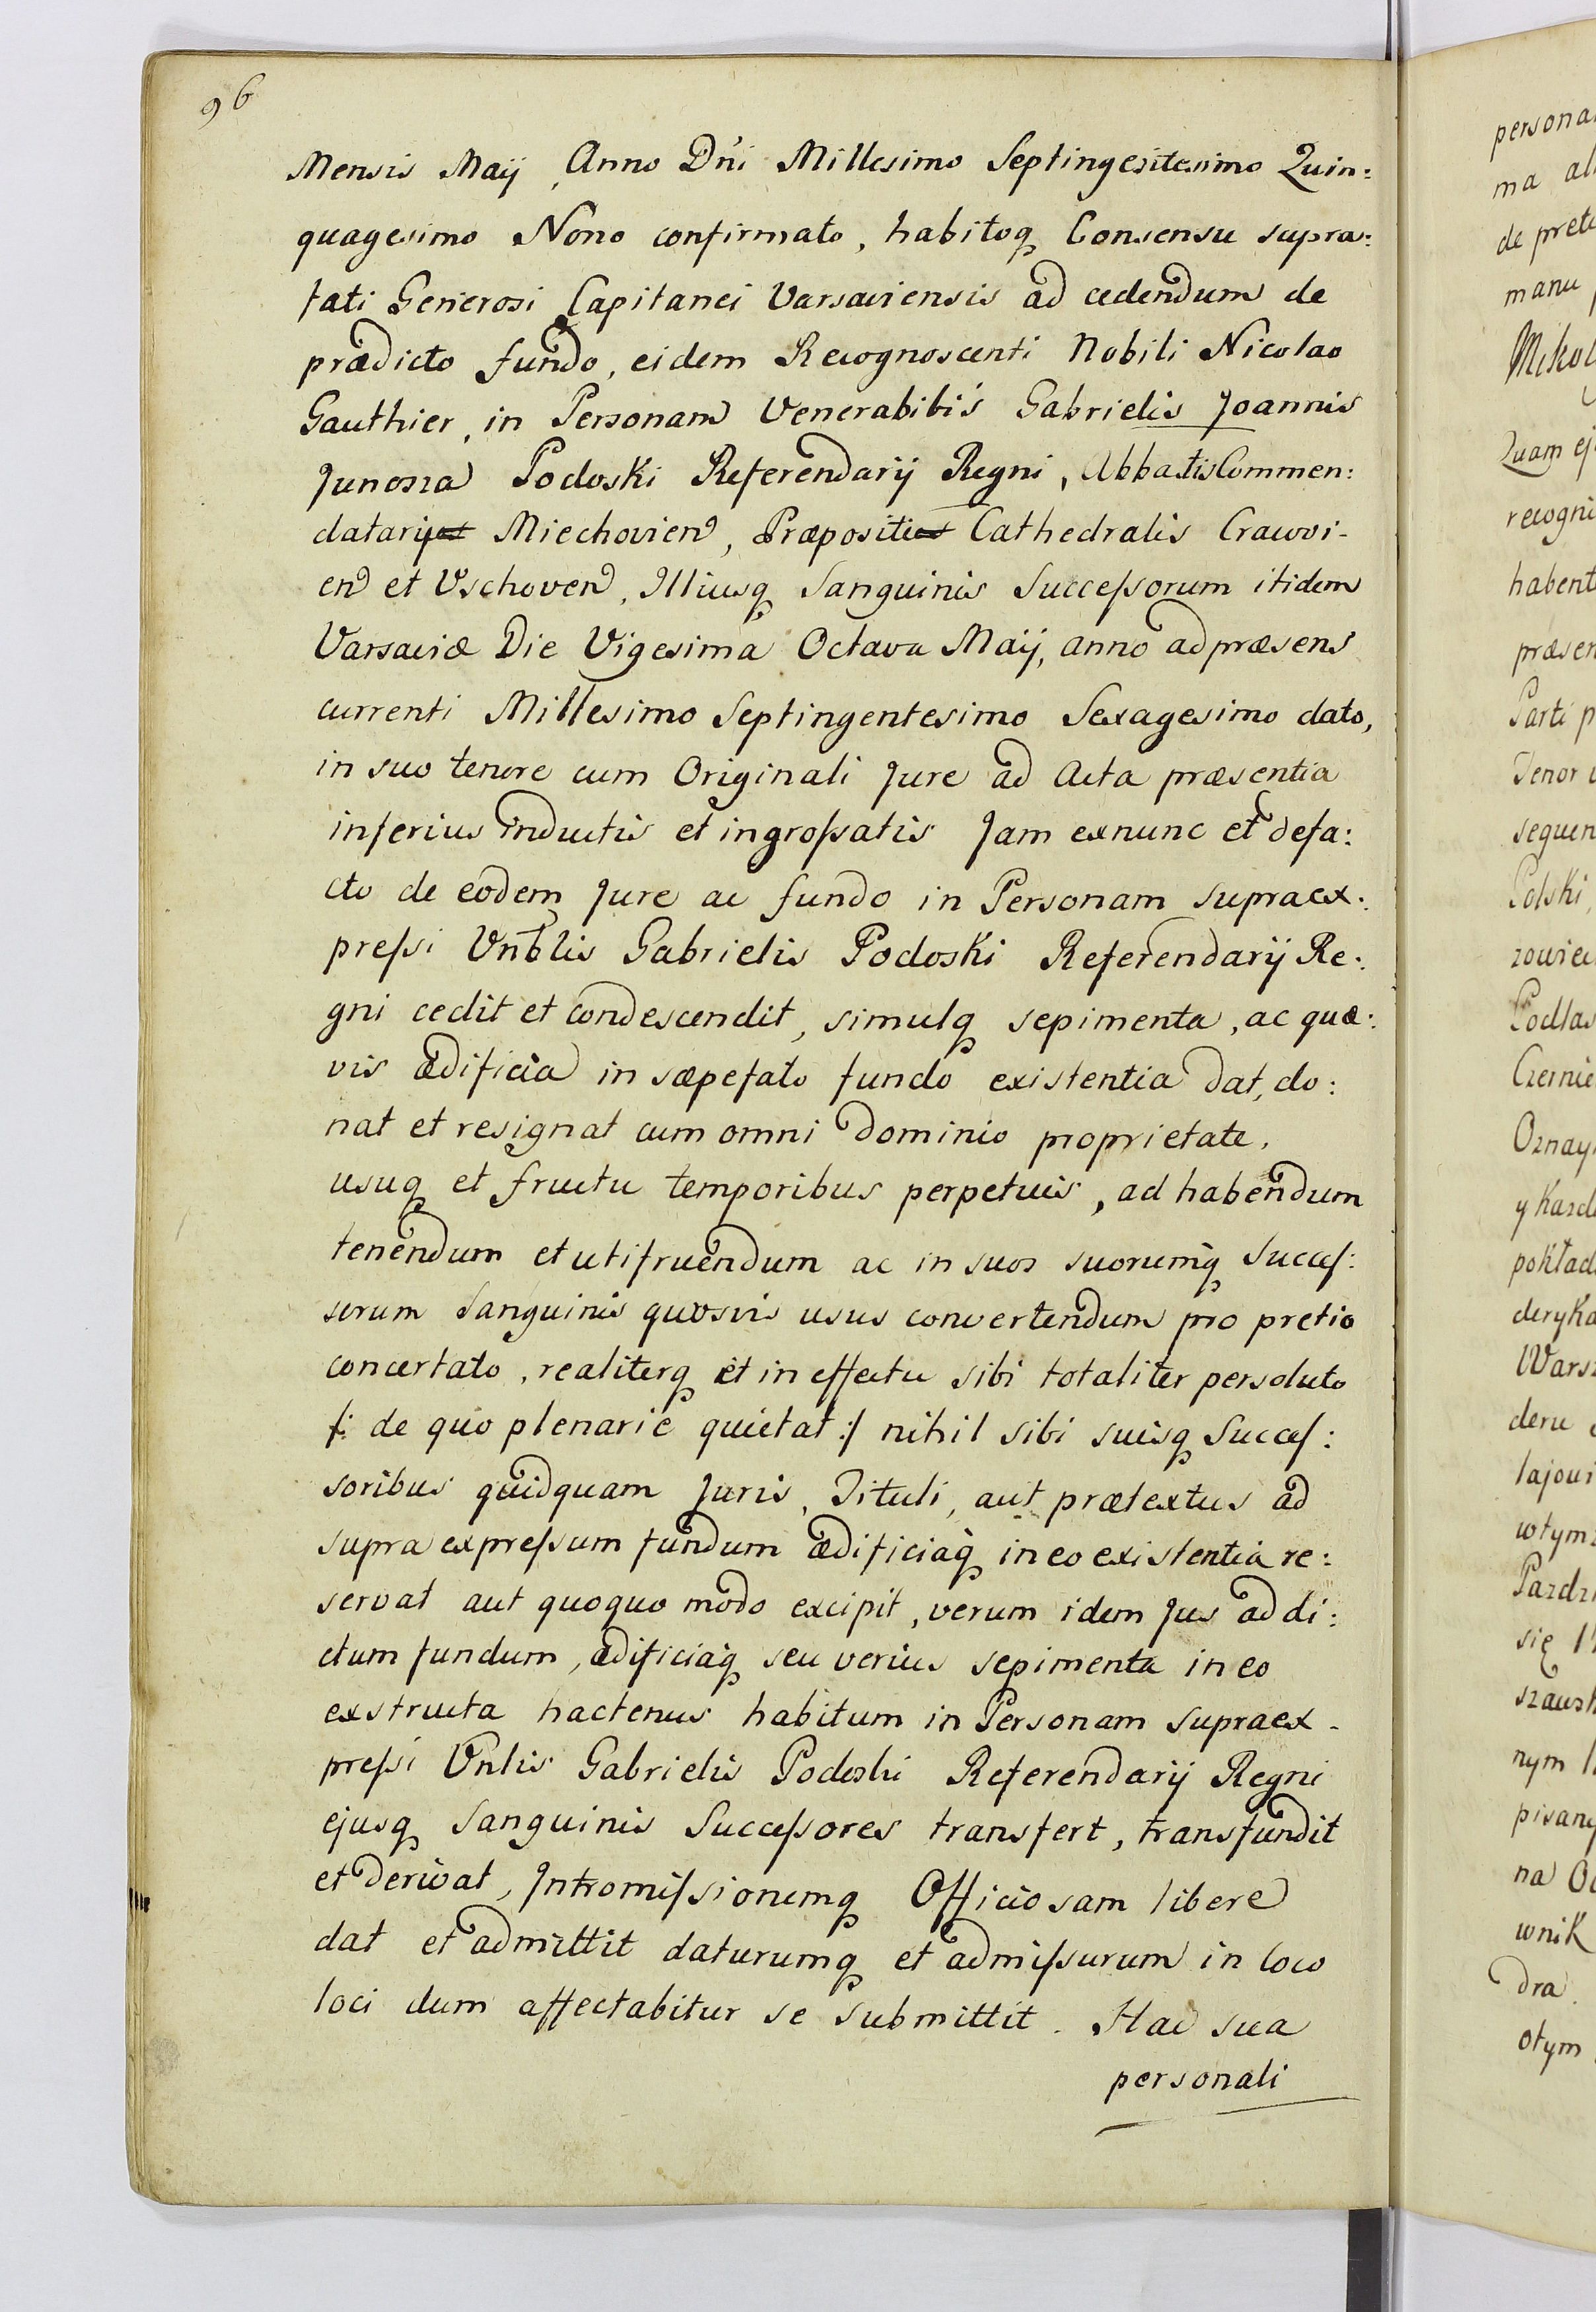 96
Mensis Maij, Anno Dñi Millesimo Septingesitesimo Quin:
quagesimo Nono confirmato, habitoq Consensu supra:
fati Generosi Capitanei Varsaviensis ad cedendum de
prædicto fundo, eidem Recognoscenti Nobili Nicolao
Gauthier, in Personam Venerabibis Gabrielis Joannis
Junosza Podoski Referendarij Regni, Abbatis Commen:
datarij Miechovien, Præpositi Cathedralis Cracovi-
en et Uschoven, Illiusq Sanguinis Successorum itidem
Varsaviæ Die Vigesima Octava Maij, anno ad præsens
currenti Millesimo Septingentesimo Sexagesimo dato,
in suo tenore cum Originali Jure ad Acta præsentia
inferius inductis et ingrossatis Jam exnunc et defa:
cto de eodem Jure ac fundo in Personam supraex:
pressi Vnblis Gabrielis Podoski Referendarij Re:
gni cedit et condescendit, simulq sepimenta, ac quæ:
vis ædificia in sæpefato fundo existentia dat, do:
nat et resignat cum omni dominio proprietate,
usuq et fructu temporibus perpetuis, ad habendum
tenendum et utifruendum ac in suos suorumq Succes:
sorum Sanguinis quosvis usus convertendum pro pretio
concertato, realiterq et in effectu sibi totaliter persoluto
/: de quo plenarie quietat :/ nihil sibi suisq Succes:
soribus quidquam Juris, Tituli, aut prætextus ad
supra expressum fundum ædificiaq in eo existentia re:
servat aut quoquo modo excipit, verum idem Jus ad di:
ctum fundum, ædificiaq seu verius sepimenta in eo
exstructa hactenus habitum in Personam supraex-
pressi Vnlis Gabrielis Podoski Referendarij Regni
ejusq Sanguinis Successores transfert, transfundit
et derivat, Intromissionemq Officiosam libere
dat et admittit daturumq et admissurum in loco
loci dum affectabitur se submittit. Hac sua
personali
persona
ma al
de prete
manu
Mikol
Quam ej
recogni
habent
præsen
Parti p
Tenor
sequen
Polski,
zowiec
Podlas
Czernie
Oznay
y Kazd
pokład
deryka
Warsz
deru
lajowi
wtym
Pazdzi
się
szawsk
nym
pisany
na O
wnik
dra
otym